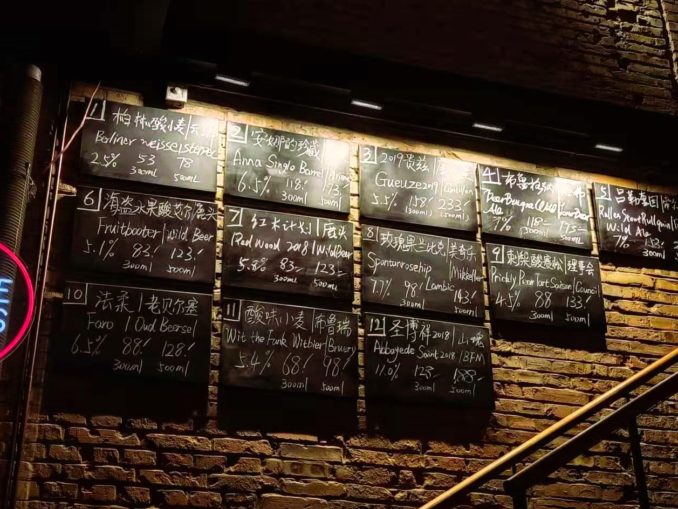 1 柏林酸小麦
Berliner Weisse
2.5% 53 78
300ml 500ml
2 安娜的珍藏
Anna Single Barrel
6.5% 118
300ml
3 2019贵兹
Gueuze 2019
5.5% 158 233
300ml 500ml
4
7% 118
300ml 500ml
5
Wild Ale
7% 152
300ml 500ml
6 海盗水果酸艾尔/鹿头
Fruitbooter | Wild Beer
5.1% 83 123
300ml 500ml
7 红木计划 | 鹿头
Red Wood 2018 | Wild Beer
5.8% 83 123
300ml 500ml
8 玫瑰果兰比克 | 美奇乐
Spontanrosehip | Mikkeller
Lambic
7.7% 98 143
300ml 500ml
9 刺梨酸赛松 | 理事会
Prickly Pear Tart Saison | Council
4.5% 88 133
300ml 500ml
10 法柔 | 老贝尔塞
Faro | Oud Beersel
6.5% 88 128
300ml 500ml
11 酸味小麦 | 布鲁瑞
Wit the Funk Witbier | Bruery
5.4% 68 98
300ml 500ml
12 圣博祥 2018
Abbaye de Saint 2018 | BFM
11.0% 128 188
300ml 500ml